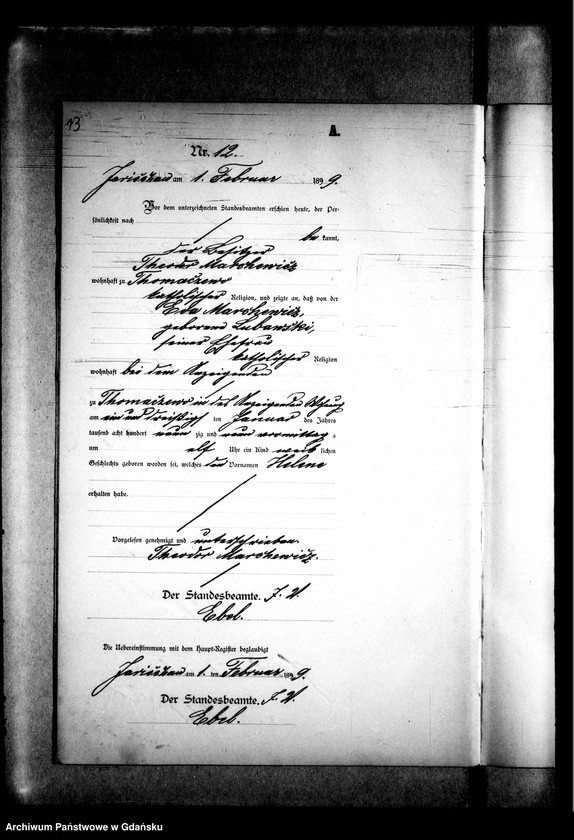 13
A.
Nr. 12.
am 1. Februar 1899.
Vor dem unterzeichneten Standesbeamten erschien heute, der Per-
sönlichkeit nach
be kannt,
der Besitzer
Theodor Marchewicz
wohnhaft zu Thomaszewo
katholischer Religion, und zeigte an, daß von der
Eva Marchewicz,
geborene Lubanski,
seiner Ehefrau
katholischer Religion
wohnhaft bei dem Anzeigenden
zu Thomaszewo in des Anzeigenden Wohnung
am ein und dreißigsten ten Januar des Jahres
tausend acht hundert neun zig und neun vormittags
um elf Uhr ein Kind weib lichen
Geschlechts geboren worden sei, welches den Vornamen Helene
erhalten habe.
Vorgelesen genehmigt und unterschrieben.
Theodor Marchewicz.
Der Standesbeamte. J. V.
Ebel.
Die Uebereinstimmung mit dem Haupt-Register beglaubigt
am 1. ten Februar 1899.
Der Standesbeamte. J. V.
Ebel.
Archiwum Państwowe w Gdańsku